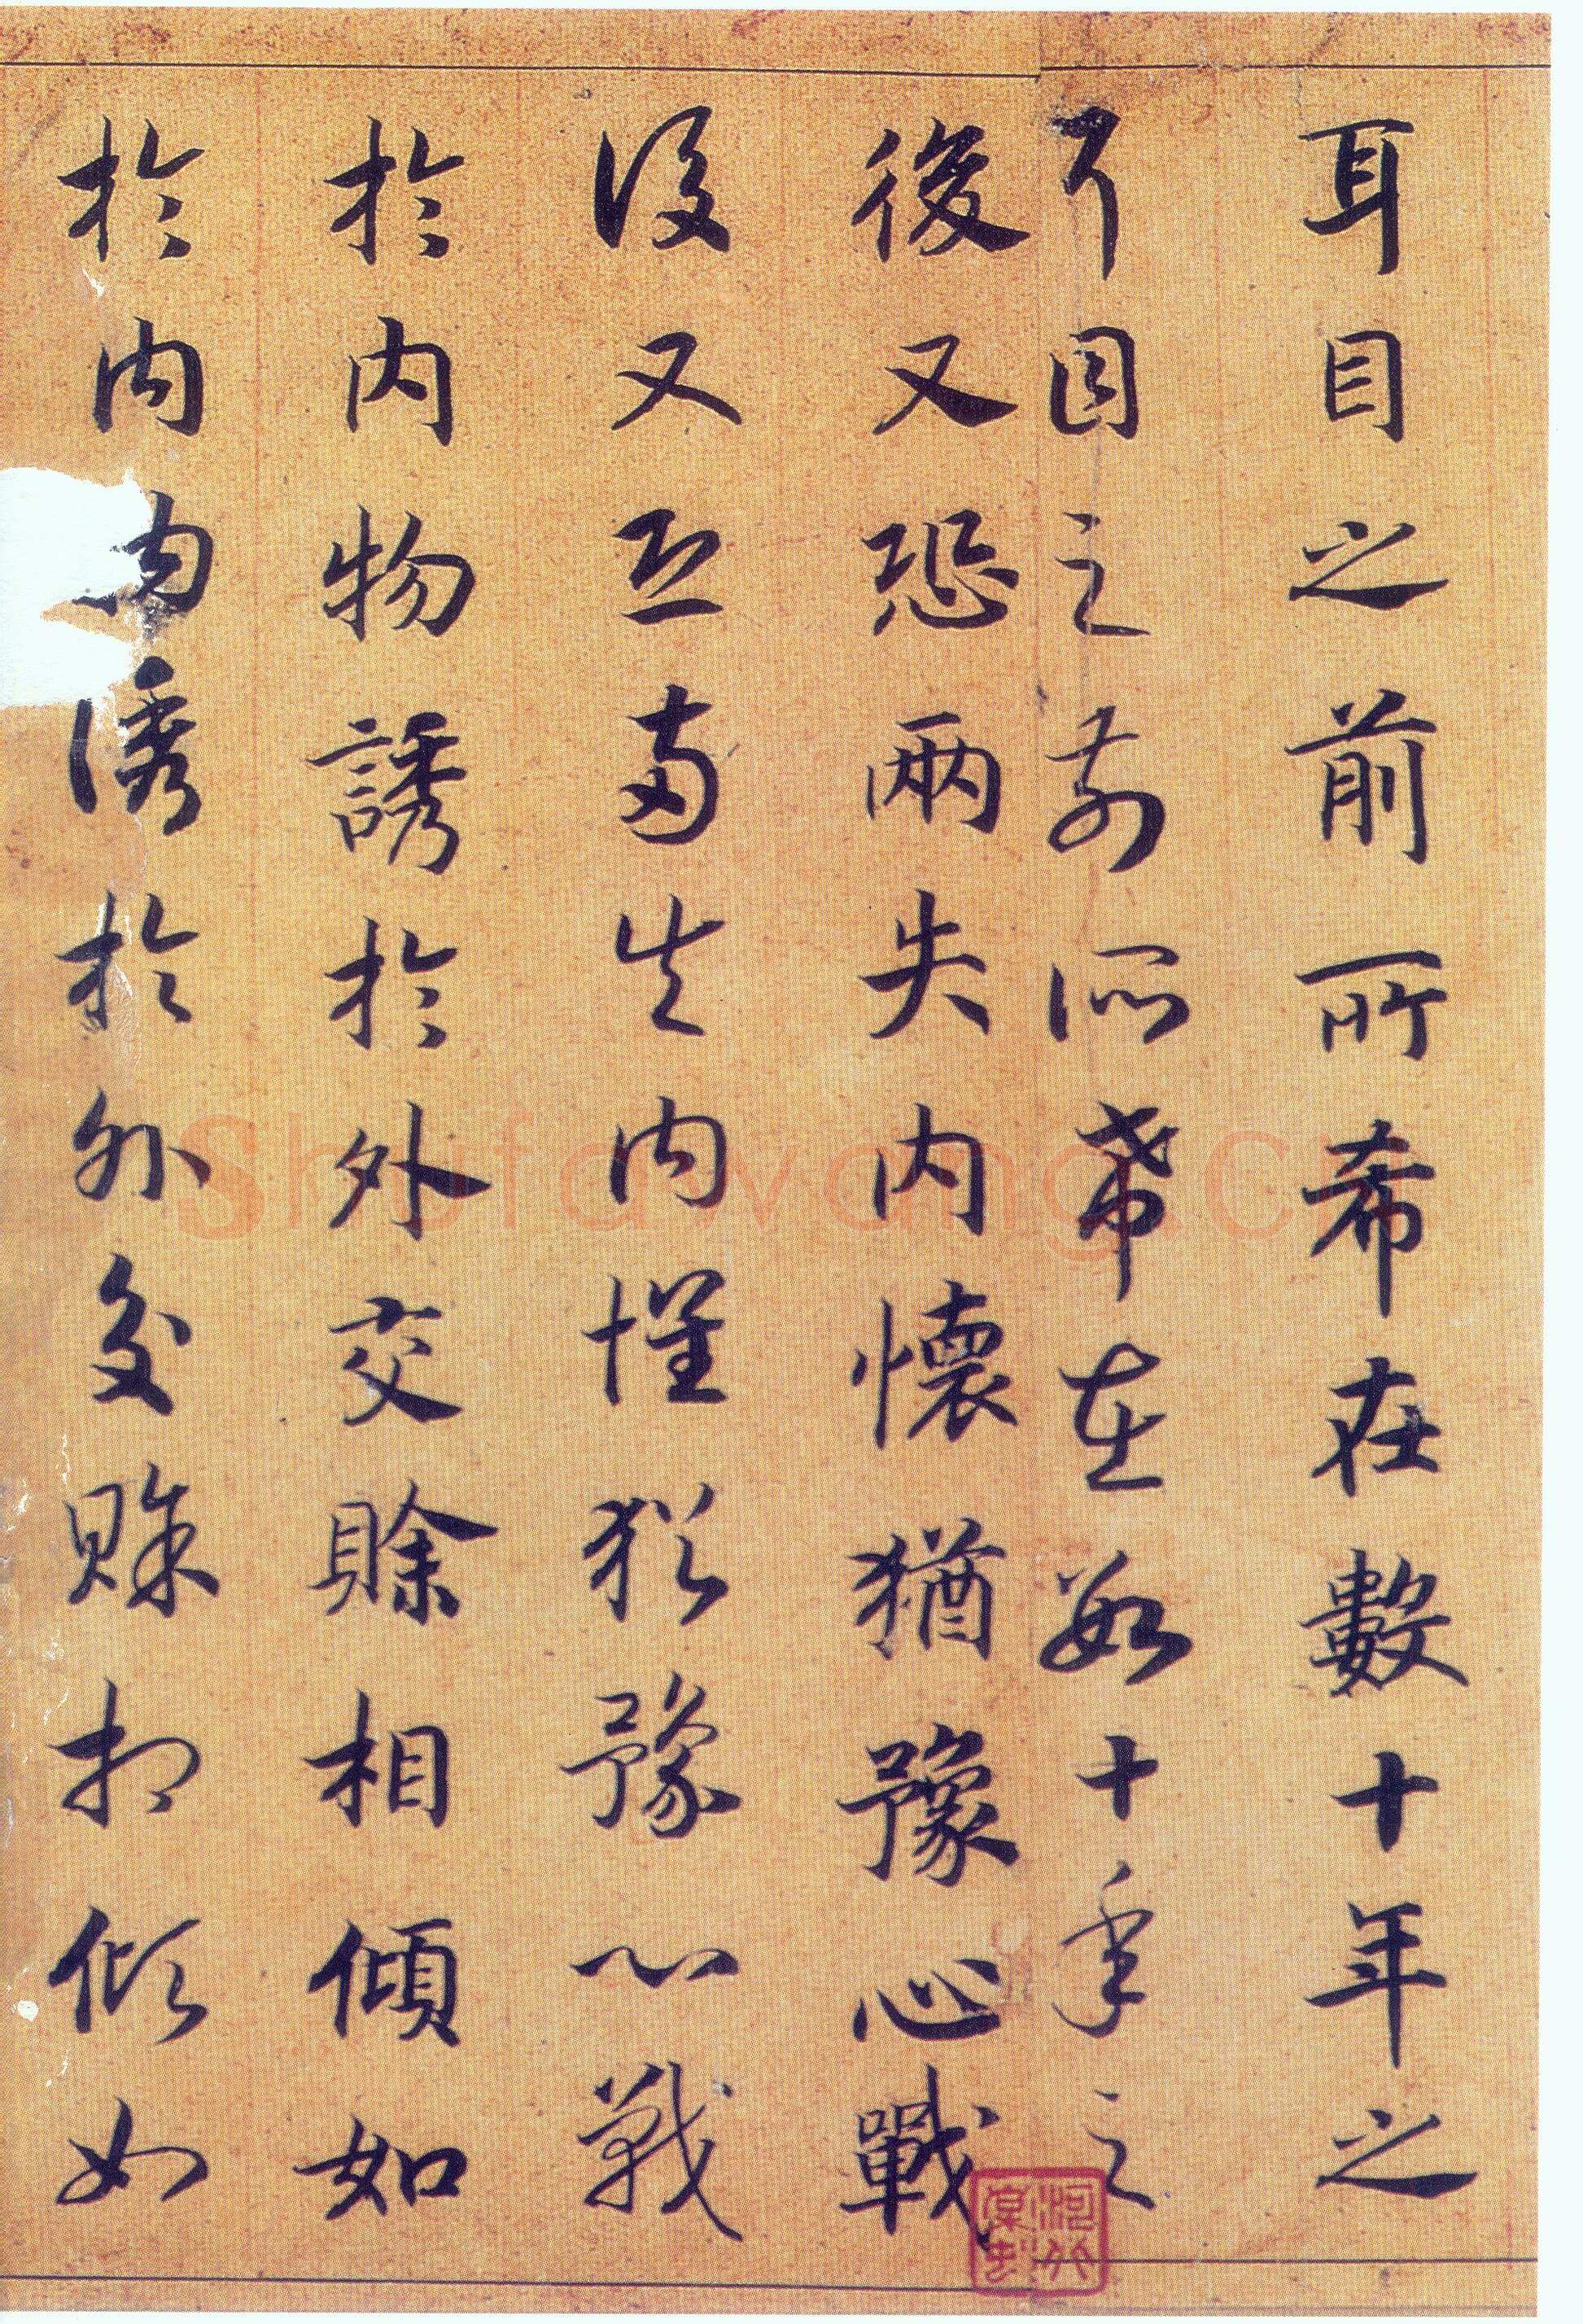 耳目之前所希在數十年之
耳目之前所希在數十年之
後又恐兩失内懷猶豫心戰
後又恐兩失内懷猶豫心戰
於内物誘於外交賒相傾如
於内物誘於外交賒相傾如
Shufawang.c